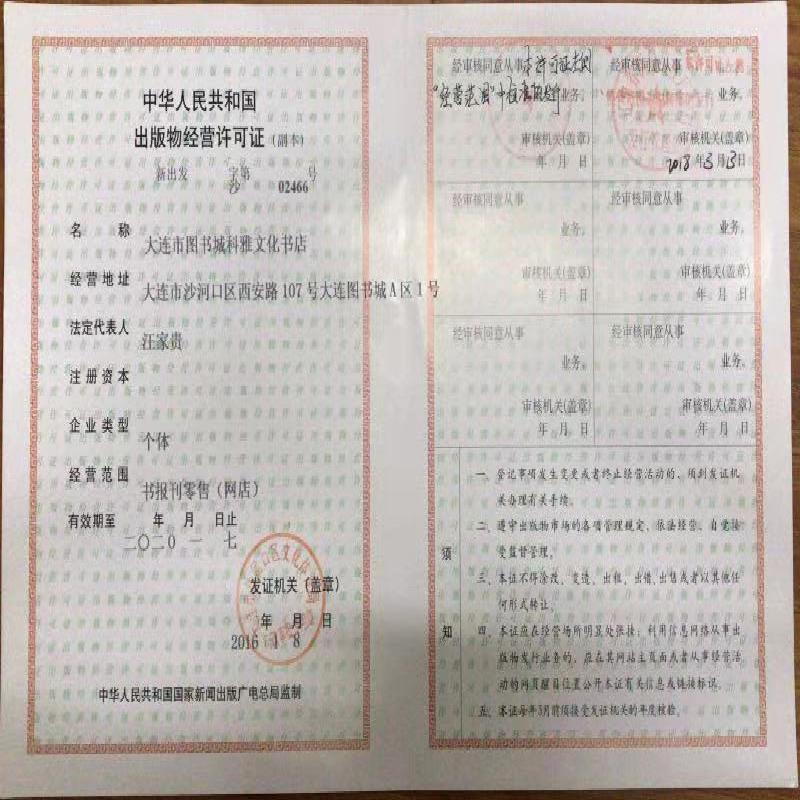 中华人民共和国
出版物经营许可证(副本)
新出发 字第 号
沙 02466
名 称
大连市图书城科雅文化书店
经营地址
大连市沙河口区西安路107号大连图书城A区1号
法定代表人
汪家贵
注册资本
企业类型
个体
经营范围
书报刊零售(网店)
有效期至 年 月 日止
二〇二〇 一 七
发证机关(盖章)
年 月 日
2016 1 8
中华人民共和国国家新闻出版广电总局监制
经审核同意从事
业务。
审核机关(盖章)
年 月 日
经审核同意从事
业务。
审核机关(盖章)
2018年3月13日
经审核同意从事
业务。
审核机关(盖章)
年 月 日
经审核同意从事
业务。
审核机关(盖章)
年 月 日
经审核同意从事
业务。
审核机关(盖章)
年 月 日
经审核同意从事
业务。
审核机关(盖章)
年 月 日
须知
一、登记事项发生变更或者终止经营活动的、须到发证机
关办理有关手续。
二、遵守出版物市场的各项管理规定、依法经营、自觉接
受监督管理。
三、本证不得涂改、变造、出租、出借、出售或者以其他任
何形式转让。
四、本证应在经营场所明显处张挂；利用信息网络从事出
版物发行业务的、应在其网站主页面或者从事经营活
动的网页醒目位置公开本证有关信息或链接标识。
五、本证每年3月前须接受发证机关的年度核验。